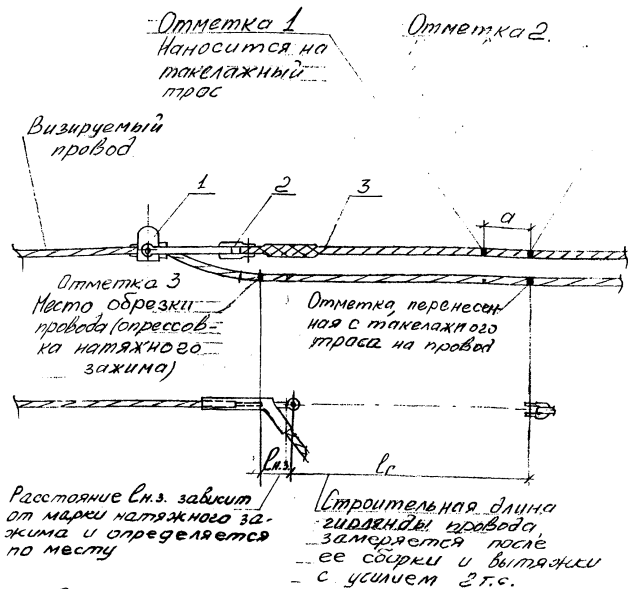 Отметка 1
Наносится на
такелажный
трос
Отметка 2.
Визируемый
провод
1
2
3
a
Отметка 3
Место обрезки
провода (опрессов-
ка натяжного
зажима)
Отметка, перенесен-
ная с такелажного
траса на провод
lн.з.
lг
Расстояние lн.з. зависит
от марки натяжного за-
жима и определяется
по месту
Строительная длина
гирлянды провода
замеряется после
ее сборки и вытяжки
с усилием 2 т.с.